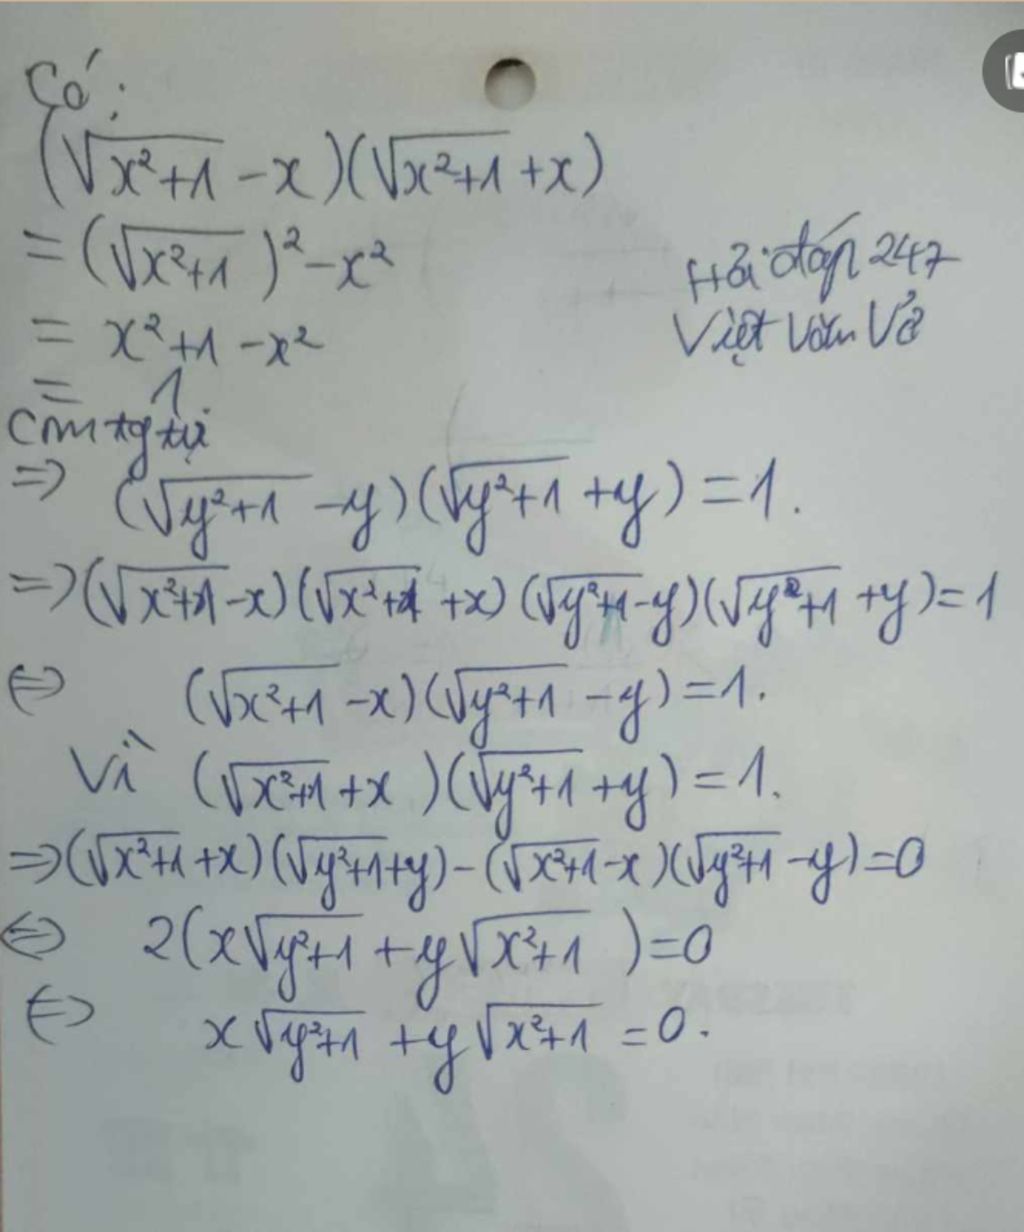 Có:
(√x²+1 -x)(√x²+1 +x)
= (√x²+1)² -x²
= x²+1 -x²
= 1
Hỏi đáp 247
Việt Văn Vở
cm tg tự
=> (√y²+1 -y)(√y²+1 +y) = 1.
=> (√x²+1 -x)(√x²+1 +x)(√y²+1 -y)(√y²+1 +y) = 1
<=> (√x²+1 -x)(√y²+1 -y) = 1.
Vì (√x²+1 +x)(√y²+1 +y) = 1.
=> (√x²+1 +x)(√y²+1 +y) - (√x²+1 -x)(√y²+1 -y) = 0
<=> 2(x√y²+1 + y√x²+1) = 0
<=> x√y²+1 + y√x²+1 = 0.